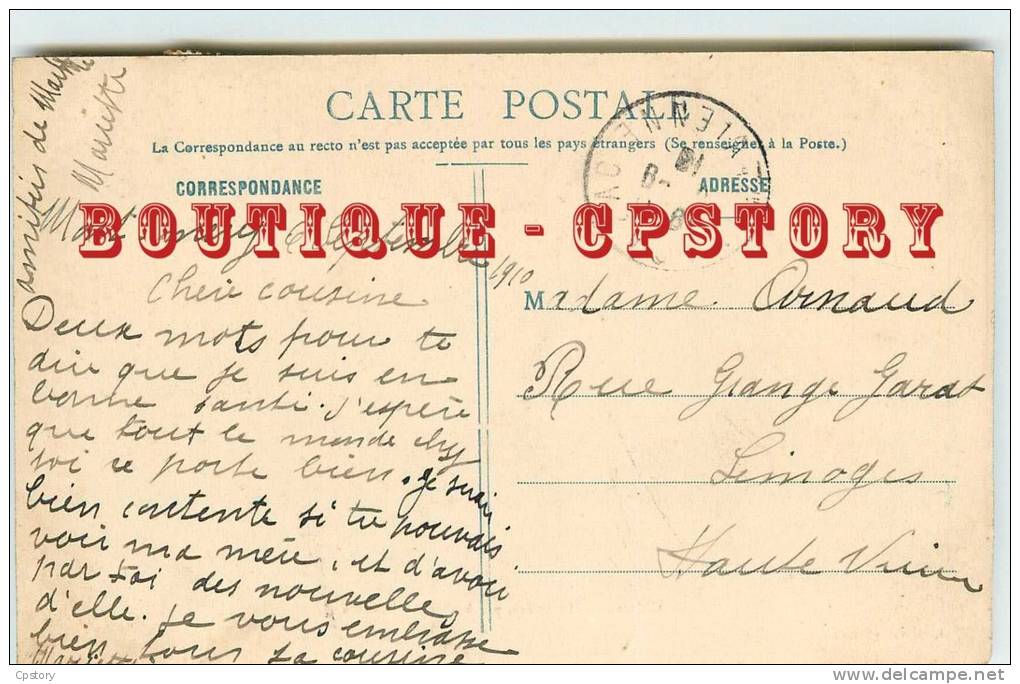 amitiés de
CARTE POSTALE
La Correspondance au recto n'est pas acceptée par tous les pays étrangers (Se renseigner à la Poste.)
CORRESPONDANCE
ADRESSE
BOUTIQUE - CPSTORY
1910
Chère cousine
Deux mots pour te
dire que je suis en
bonne santé. J'espère
que tout le monde chez
toi se porte bien. Je serai
bien contente si tu pouvais
voir ma mère, et d'avoir
par toi des nouvelles
d'elle. Je vous embrasse
bien tous ta cousine
Madame Arnaud
Rue Grange Garat
Limoges
Haute Vienne
Cpstory
delcampe.net